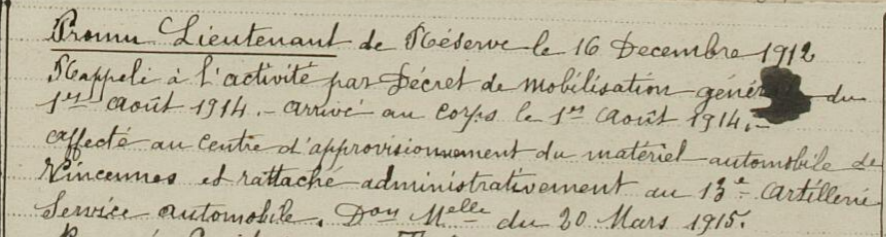 Promu Lieutenant de Réserve le 16 Decembre 1912
Rappelé à l'activité par Décret de mobilisation génér du
1er Août 1914. - arrivé au corps le 1er Août 1914. -
affecté au Centre d'approvisionnement du matériel automobile de
Vincennes et rattaché administrativement au 13e Artillerie
Service automobile. Don Melle du 20 Mars 1915.